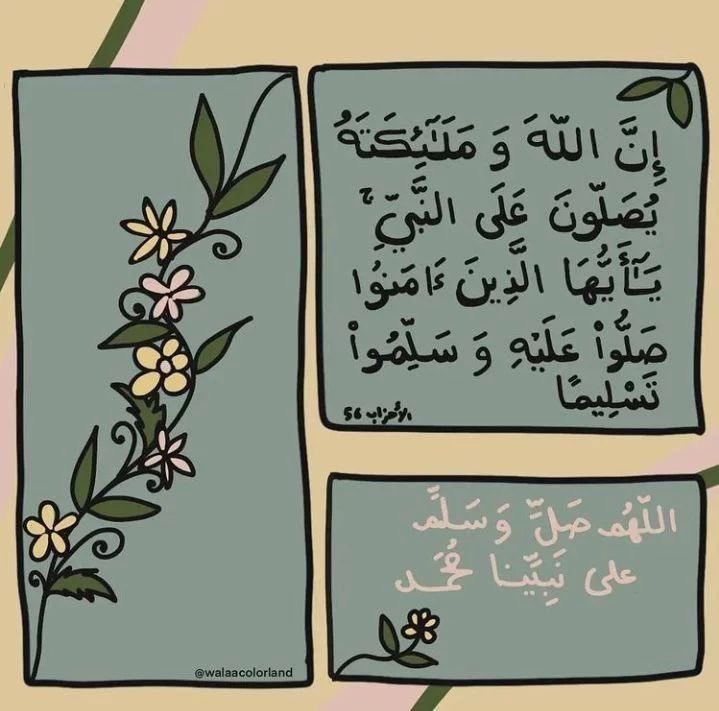 إِنَّ اللَّهَ وَ مَلَٰٓئِكَتَهُ
يُصَلُّونَ عَلَى النَّبِيِّ ۚ
يَٰٓأَيُّهَا الَّذِينَ ءَامَنُوا
صَلُّوا۟ عَلَيْهِ وَ سَلِّمُوا۟
تَسْلِيمًا
الأحزاب 56
اللّهُم صَلِّ وَ سَلِّم
على نَبِيِّنا مُحَمد
@walaacolorland